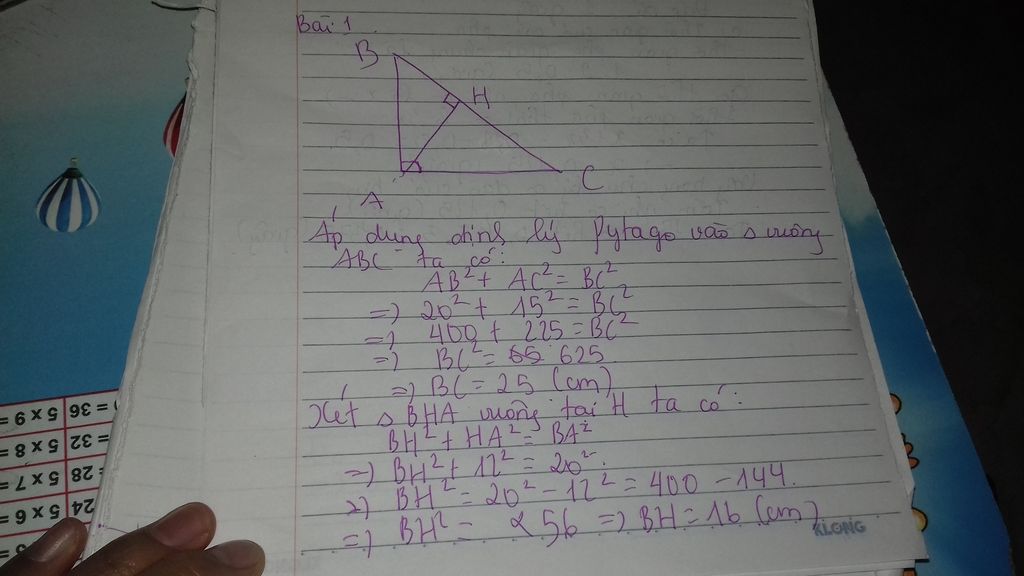 Bài 1
B
H
A
C
Áp dụng định lý Pytago vào Δ vuông
ABC ta có:
AB² + AC² = BC²
=) 20² + 15² = BC²
=) 400 + 225 = BC²
=) BC² = 625
=) BC = 25 (cm)
Xét Δ BHA vuông tại H ta có:
BH² + HA² = BA²
=) BH² + 12² = 20²
=) BH² = 20² - 12² = 400 - 144.
=) BH² = 256 =) BH = 16 (cm)
KLONG
= 36 5 x 9 =
= 32 5 x 8 =
= 28 5 x 7 =
24 5 x 6 =